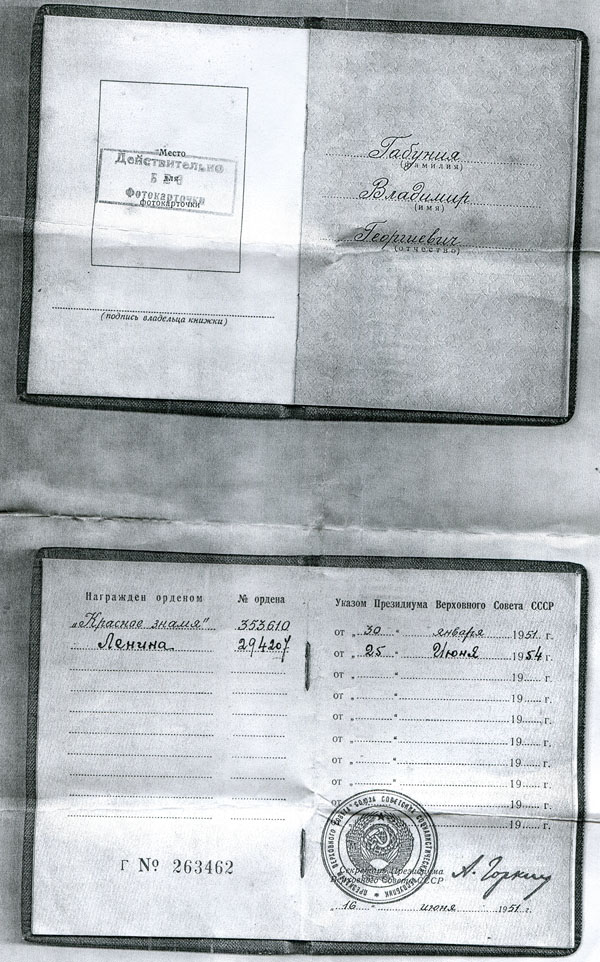 Место
Действительно
для
БЕЗ
Фотокарточки
фотокарточки
(подпись владельца книжки)
Габуния
(фамилия)
Владимир
(имя)
Георгиевич
(отчество)
Награжден орденом № ордена
„Красное знамя" 353610
Ленина 294207
Г № 263462
Указом Президиума Верховного Совета СССР
от „30" января 1951 г.
от „25" Июня 1954 г.
от „ " 19 г.
от „ " 19 г.
от „ " 19 г.
от „ " 19 г.
от „ " 19 г.
от „ " 19 г.
от „ " 19 г.
от „ " 19 г.
Секретарь Президиума
Верховного Совета СССР
А. Горкин
„16" июня 1951 г.